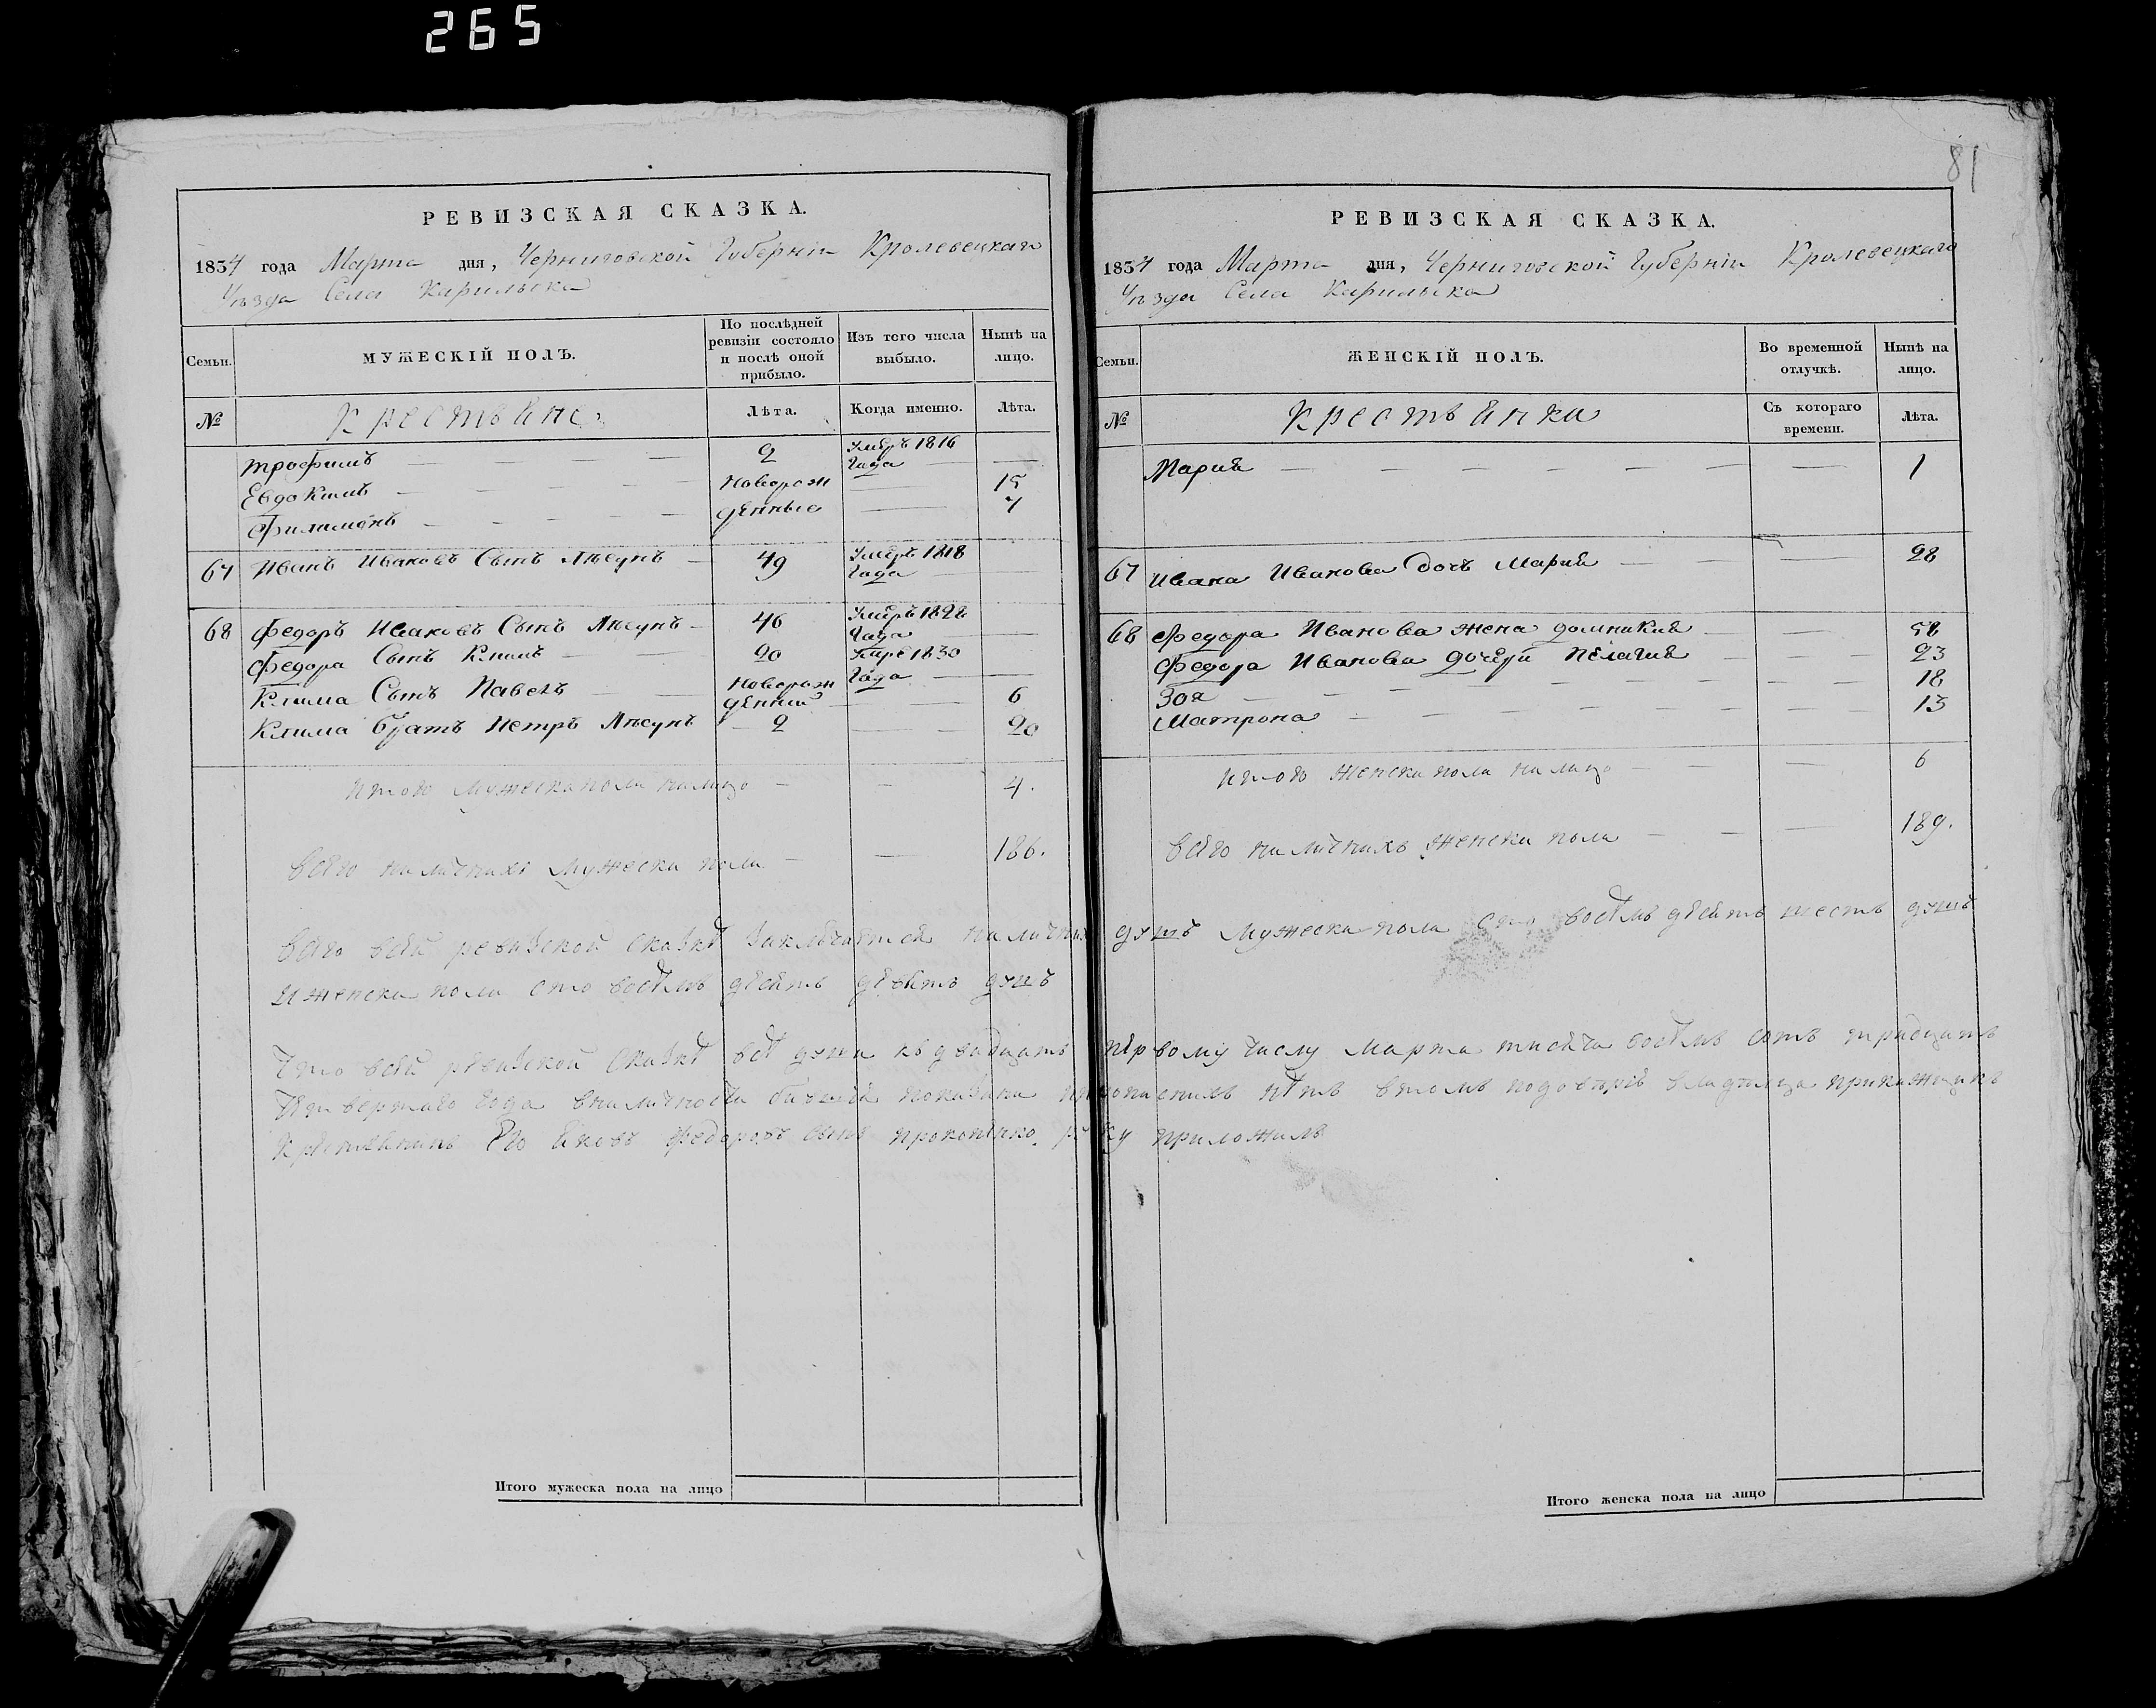 265
81
РЕВИЗСКАЯ СКАЗКА.
1834 года Марта дня, Черниговской Губерніи Кролевецкаго
Уѣзда Села Карильска
Семьи.
МУЖЕСКІЙ ПОЛЪ.
По послѣдней ревизіи состояло и послѣ оной прибыло.
Изъ того числа выбыло.
Нынѣ на лицо.
№
Крестьяне
Лѣта.
Когда именно.
Лѣта.
Трофимъ — 2 Умеръ 1816 Года —
Евдокимъ — Новорож — 15
Филимонъ — денные — 7
67 Иванъ Ивановъ Сынъ Лѣсунъ — 49 Умеръ 1818 Года —
68 Федоръ Ивановъ Сынъ Лѣсунъ — 46 Умеръ 1828 Года —
Федора Сынъ Климъ — 20 Умре 1830 Года —
Клима Сынъ Павелъ — Новорожденний — 6
Клима братъ Петръ Лѣсунъ — 2 — 20
Итого мужеска пола налицо — 4.
Всего наличнихъ мужеска пола — 186.
РЕВИЗСКАЯ СКАЗКА.
1834 года Марта дня, Черниговской Губерніи Кролевецкаго
Уѣзда Села Карильска
Семьи.
ЖЕНСКІЙ ПОЛЪ.
Во временной отлучкѣ.
Нынѣ на лицо.
№
Крестьянки
Съ котораго времени.
Лѣта.
Мария — 1
67 Ивана Иванова дочь Мария — 28
68 Федора Иванова жена Домникия — 58
Федора Иванова дочери Пелагия — 23
Зоя — 18
Матрона — 13
Итого женска пола налицо — 6
Всего наличнихъ женска пола — 189.
Всего всей ревизской сказкѣ заключается наличних душъ мужеска пола сто восемь десятъ шесть душъ
и женска пола сто восемь десятъ девять душъ
Что всей ревизской сказкѣ всѣ души къ двадцать первому числу марта тисяча восемь сотъ тридцать
Четвертаго года вналичности бившія показани нетъ втомъ прикажщикъ
Крестянинъ Его Яковъ Федоровъ сынъ Прокопенко руку приложилъ
Итого мужеска пола на лицо
Итого женска пола на лицо